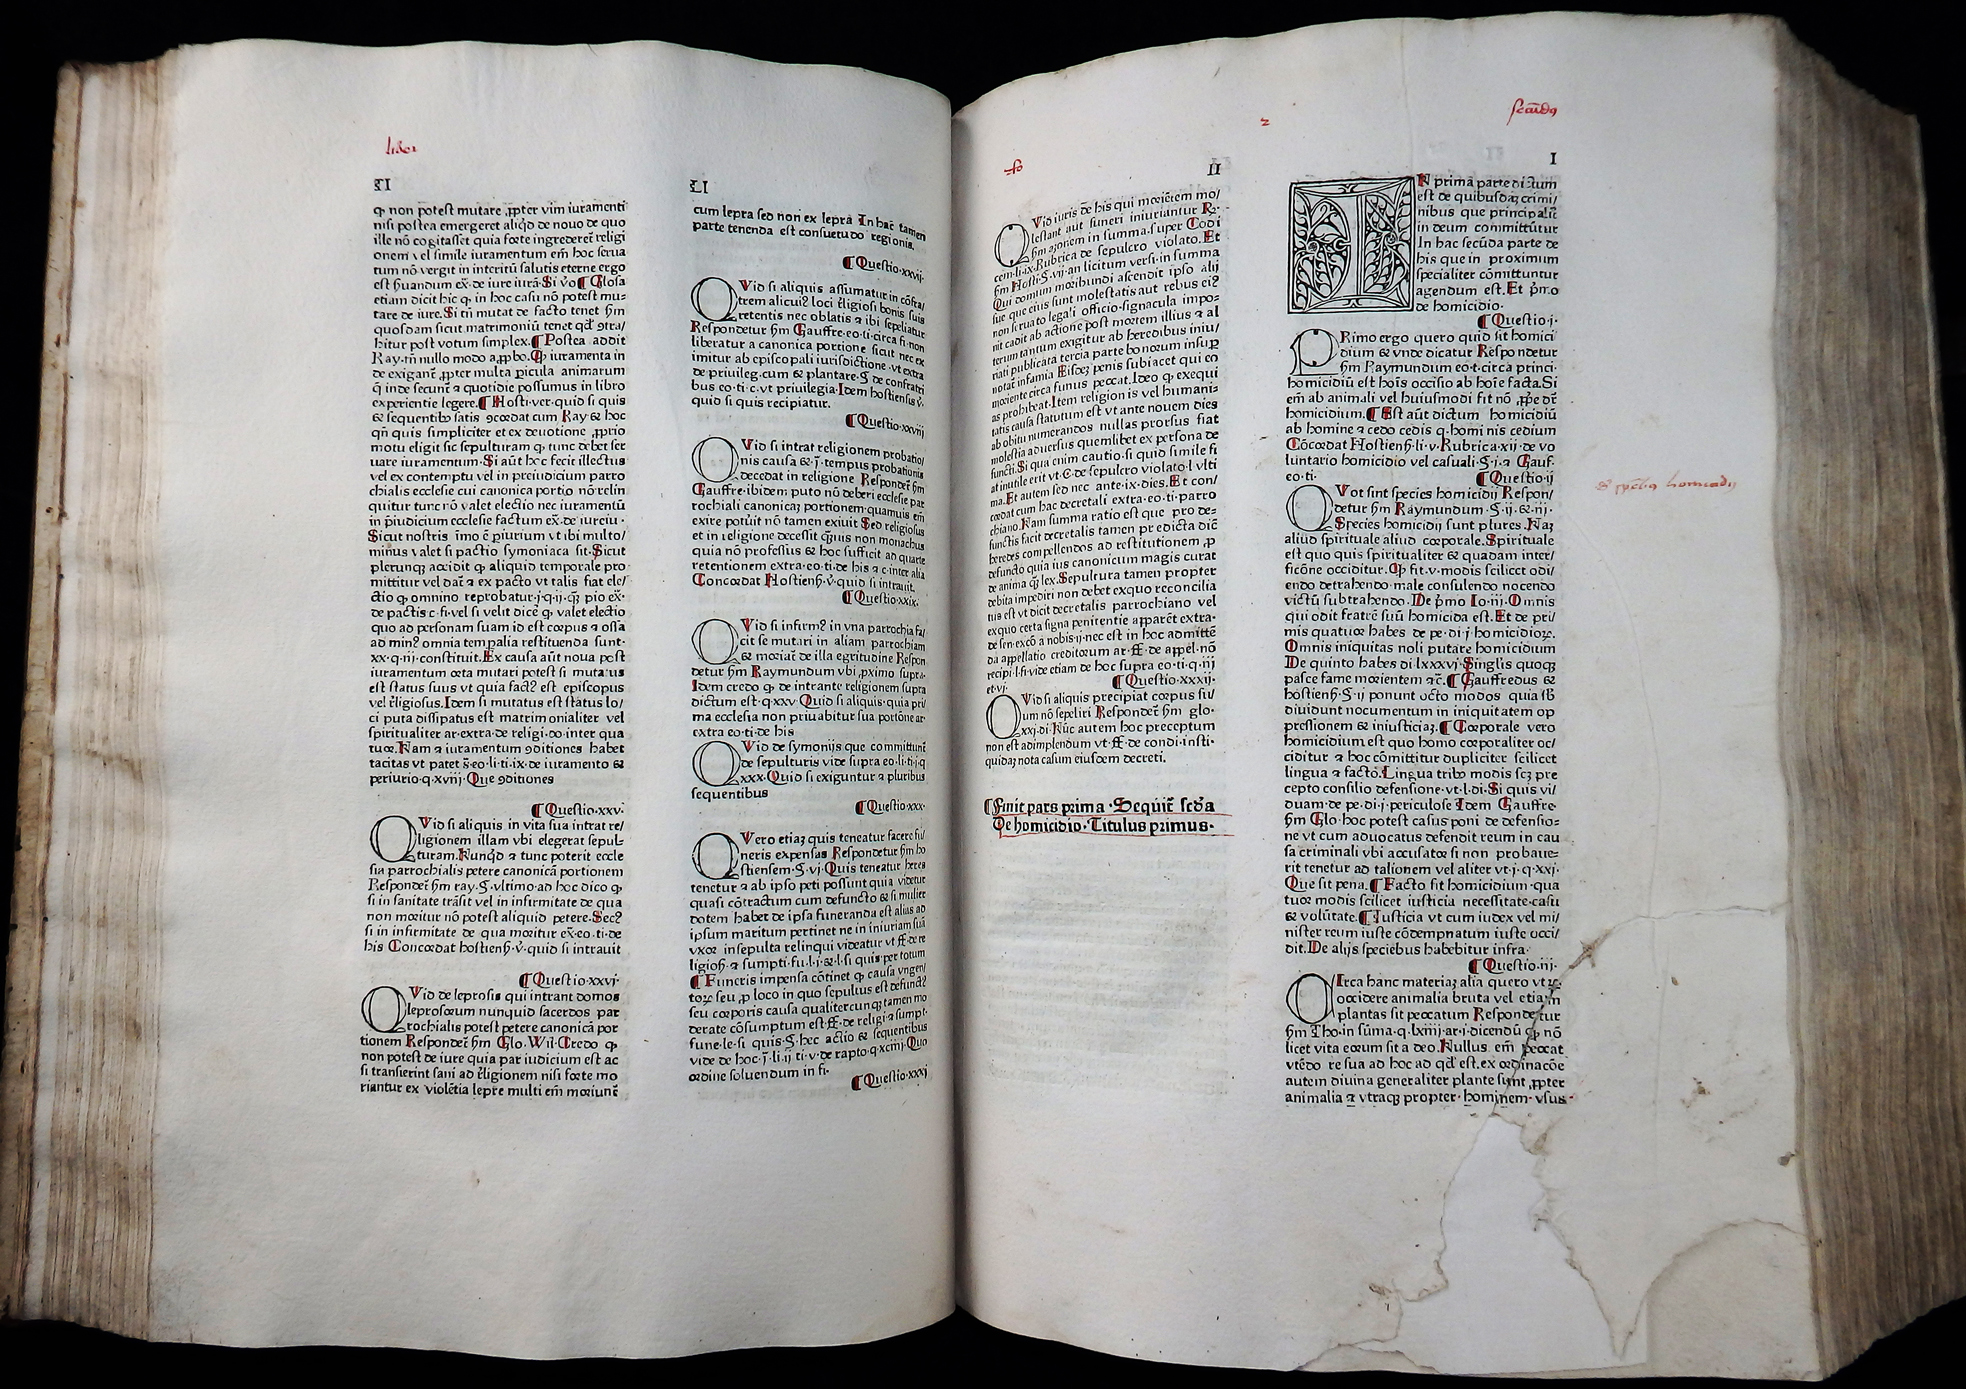 liber
LI
LI
ꝙ non potest mutare ꝓpter vim iuramenti
nisi postea emergeret aliqd de nouo de quo
ille nō cogitasset quia forte ingrederet̄ religi
onem vel simile iuramentum em̄ hoc serua
tum nō vergit in interitū salutis eterne ergo
est ẜuandum ex̄·de iure iurā·Si v̊o ¶ Glosa
etiam dicit hic ꝙ in hoc casu nō potest mu-
tare de iure·Si tn̄ mutat de facto tenet ẜm
quosdam sicut matrimoniū tenet qd̄ ꝯtra/
hitur post votum simplex.¶ Postea addit
Ray·tn̄ nullo modo aꝓbo.Qꝙ iuramenta in
de exigant̄ ꝓpter multa ꝑicula animarum
q̄ inde secunt̄ ⁊ quotidie possumus in libro
experientie legere.¶ Hosti·ver·quid si quis
⁊ sequentibꝰ satis ꝯcordat cum Ray ⁊ hoc
qn̄ quis simpliciter et ex deuotione ꝓprio
motu eligit sic sepulturam ꝙ tunc debet ser
uare iuramentum·Si aūt hoc fecit illectus
vel ex contemptu vel in preiudicium parro
chialis ecclesie cui canonica portio nō relin
quitur tunc nō valet electio nec iuramentū
in p̄iudicium ecclesie factum ex̄·de iureiu·
Sicut nostris īmo ē ꝑiurium vt ibi multo/
minus valet si pactio symoniaca sit·Sicut
plerunqꝫ accidit ꝙ aliquid temporale pro
mittitur vel dat̄ ⁊ ex pacto vt talis fiat ele/
ctio ꝙ omnino reprobatur·j·q·ij·qꝫ pio ex̄·
de pactis·c·fi·vel si velit dicē ꝙ valet electio
quo ad personam suam id est corpus ⁊ ossa
ad minꝰ omnia tempalia restituenda sunt·
xx·q·iij·constituit.Ex causa aūt noua post
iuramentum orta mutari potest si mutatus
est status suus vt quia factꝰ est episcopus
vel r̄ligiosus.Idem si mutatus est status lo/
ci puta dissipatus est matrimonialiter vel
spiritualiter ar·extra·de religi·do·inter qua
tuor.Nam ⁊ iuramentum ꝯditiones habet
tacitas vt patet s̄·eo·li·ti·ix·de iuramento ⁊
periurio·q·xviij·Que ꝯditiones
¶ Questio·xxv·
QVid si aliquis in vita sua intrat re/
ligionem illam vbi elegerat sepul-
turam.Nunqd ⁊ tunc poterit eccle
sia parrochialis petere canonicā portionem
Respondet̄ ẜm ray·§·vltimo·ad hoc dico ꝙ
si in sanitate trāsit vel in infirmitate de qua
non moritur nō potest aliquid petere·Secꝰ
si in infirmitate de qua moritur ex̄·eo·ti·de
his Concordat hostienẜ·v̊·quid si intrauit
¶ Questio·xxvj·
QVid de leprosis qui intrant domos
leprosorum nunquid sacerdos par
rochialis potest petere canonicā por
tionem Respondet̄ ẜm Glo·Wil·Credo ꝙ
non potest de iure quia par iudicium est ac
si transierint sani ad r̄ligionem nisi forte mo
riantur ex violētia lepre multi em̄ moriunt̄
cum lepra sed non ex lepra In hac̄ tamen
parte tenenda est consuetudo regionis.
¶ Questio·xxvij·
QVid si aliquis assumatur in cōfra/
trem alicuiꝰ loci r̄ligiosi bonis suis
retentis nec oblatis ⁊ ibi sepeliatur
Respondetur ẜm Gauffre·eo·ti·circa fi·non
liberatur a canonica portione sicut nec ex
imitur ab episcopali iurisdictione·vt extra
de priuileg·cum ⁊ plantare·§·de confratri
bus eo·ti·c·vt priuilegia·Idem hostiensis v̊·
quid si quis recipiatur.
¶ Questio·xxviij
QVid si intrat religionem probatio/
nis causa ⁊ j̄·tempus probationis
decedat in religione Respondet̄ ẜm
Gauffre·ibidem puto nō deberi ecclesie par
rochiali canonicaꝫ portionem·quamuis em̄
exire potuit nō tamen exiuit Sed religiosus
et in religione decessit qꝫuis non monachus
quia nō professus ⁊ hoc sufficit ad quarte
retentionem extra·eo·ti·de his ⁊ c·inter alia
Concordat Hostienẜ·v̊·quid si intrauit.
¶ Questio·xxix·
QVid si infirmꝰ in vna parrochia fa/
cit se mutari in aliam parrochiam
⁊ moriat̄ de illa egritudine Respon
detur ẜm Raymundum vbi ꝓximo supra·
Idem credo ꝙ de intrante religionem supra
dictum est·q·xxv·Quid si aliquis·quia pri/
ma ecclesia non priuabitur sua portiōne ar·
extra·eo·ti·de his
QVid de symonijs que committunt̄
de sepulturis vide supra eo·li·ti·j·q
xxx·Quid si exiguntur ⁊ pluribus
sequentibus
¶ Questio·xxx·
QVero etiaꝫ quis teneatur facere fu/
neris expensas Respondetur ẜm ho
stiensem·§·vj·Quis teneatur heres
tenetur ⁊ ab ipso peti possunt quia videtur
quasi cōtractum cum defuncto ⁊ si mulier
dotem habet de ipsa funeranda est alias ad
ipsum maritum pertinet ne in iniuriam suā
vxor insepulta relinqui videatur vt ff·de re
ligioẜ·⁊ sumpti·fu·l·j·⁊·l·si quis·per totum
¶ Funeris impensa cōtinet ꝙ causa vngen/
torꝝ seu ꝓ loco in quo sepultus est defunctꝰ
seu corporis causa qualitercunqꝫ tamen mo
derate cōsumptum est·ff·de religi·⁊ sumpt·
fune·le·si quis·§·hec actio ⁊ sequentibus
vide de hoc·j̄·li·ij·ti·v·de rapto·q·xciiij·Quo
ordine soluendum in fi·
¶ Questio·xxxj
fo
II
QVid iuris de his qui morientem mo/
lestant aut funeri iniuriantur R·
ẜm azonem in summa·super Codi
cem·li·ix·Rubrica·de sepulcro violato.Et
ẜm Hosti·§·vij·an licitum versi·in summa
Qui domum moribundi ascendit ipso alij
sue que eius sunt molestatis aut rebus eiꝰ
non seruato legali officio·signacula impo-
nit cadit ab actione post mortem illius ⁊ al
terum tantum exigitur ab heredibus iniu/
riati publicata tercia parte bonorum insuꝑ
notat̄ infamia Eisdeꝫ penis subiacet qui eo
moriente circa funus peccat.Ideo ꝙ exequi
as prohibeat.Item religionis vel humani-
tatis causa statutum est vt ante nouem dies
ab obitu numerandos nullas prorsus fiat
molestia aduersus quemlibet ex persona de
functi.Si qua enim cautio·si quid simile fi
at inutile erit vt·C·de sepulcro violato·l·vlti
ma.Et autem sed nec ante·ix·dies.Et con/
cordat cum hac decretali extra·eo·ti·parro
chiano.Nam summa ratio est que pro de-
functis facit decretalis tamen predicta dic̄
heredes compellendos ad restitutionem ꝓ
defuncto quia ius canonicum magis curat
de anima qꝫ lex.Sepultura tamen propter
debita impediri non debet exquo reconcilia
tus est vt dicit decretalis parrochiano vel
exquo certa signa penitentie apparēt extra-
de sen·excō a nobis·ij·nec est in hoc admittē
da appellatio creditorum ar·ff·de appel·nō
recipi·l·fi·vide etiam de hoc supra eo·ti·q·iij
et·vj·
¶ Questio·xxxij·
QVid si aliquis precipiat corpus su/
um nō sepeliri Respondet̄ ẜm glo·
xxj·di·Nūc autem hoc preceptum
non est adimplendum vt·ff·de condi·insti·
quidaꝫ nota casum eiusdem decreti.
¶ Finit pars prima·Sequit̄ scd̄a
De homicidio·Titulus primus·
2
secūdꝯ
I
IN prima parte dictum
est de quibusdaꝫ crimi/
nibus que principalit̄
in deum committūtur
In hac secūda parte de
his que in proximum
specialiter cōmittuntur
agendum est.Et p̄mo
de homicidio·
¶ Questio·j·
PRimo ergo quero quid sit homici
dium ⁊ vnde dicatur Respondetur
ẜm Raymundum eo·t·circa princi·
homicidiū est hoīs occisio ab hoīe facta.Si
em̄ ab animali vel huiusmodi fit nō ꝓpe dr̄
homicidium.¶ Est aūt dictum homicidiū
ab homine ⁊ cedo cedis q·hominis cedium
Cōcordat Hostienẜ·li·v·Rubrica·xij·de vo
luntario homicidio vel casuali·§·j·⁊ Gauf·
eo·ti·
¶ Questio·ij
QVot sint species homicidij Respon/
detur ẜm Raymundum·§·ij·⁊·iij·
Species homicidij sunt plures.Naꝫ
aliud spirituale aliud corporale.Spirituale
est quo quis spiritualiter ⁊ quadam inter/
ficōne occiditur.Qꝙ fit·v·modis scilicet odi/
endo detrahendo·male consulendo nocendo
victū subtrahendo·De p̄mo Io·iij·Omnis
qui odit fratrē suū homicida est.Et de pri/
mis quatuor habes de pe·di·j·homicidiorꝝ·
Omnis iniquitas noli putare homicidium
De quinto habes di·lxxxvj·Singlis quoqꝫ
pasce fame morientem ⁊c̄.¶ Gauffredus ⁊
hostienẜ·§·ij ponunt octo modos quia sb̄
diuidunt nocumentum in iniquitatem op
pressionem ⁊ iniusticiaꝫ.¶ Corporale vero
homicidium est quo homo corporaliter oc/
ciditur ⁊ hoc cōmittitur dupliciter scilicet
lingua ⁊ facto.Lingua tribꝰ modis scꝫ pre
cepto consilio defensione·vt·l·di·Si quis vi/
duam·de pe·di·j·periculose Idem Gauffre·
ẜm Glo·hoc potest casus poni de defensio-
ne vt cum aduocatus defendit reum in cau
sa criminali vbi accusator si non probaue-
rit tenetur ad talionem vel aliter vt·j·q·xxj·
Que sit pena.¶ Facto fit homicidium·qua
tuor modis scilicet iusticia necessitate·casu
⁊ volūtate.¶ Iusticia vt cum iudex vel mi/
nister reum iuste cōdempnatum iuste occi/
dit.De alijs speciebus habebitur infra·
¶ Questio·iij·
CIrca hanc materiaꝫ alia quero vtrꝝ·
occidere animalia bruta vel etiam
plantas sit peccatum Respondetur
ẜm Tho·in sūma·q·lxiiij·ar·j·dicendū ꝙ nō
licet vita eorum sit a deo.Nullus em̄ peccat
vtēdo re sua ad hoc ad qd̄ est.ex ordinacōe
autem diuina generaliter plante sunt ꝓpter
animalia ⁊ vtraqꝫ propter·hominem·vsus·
homicidij